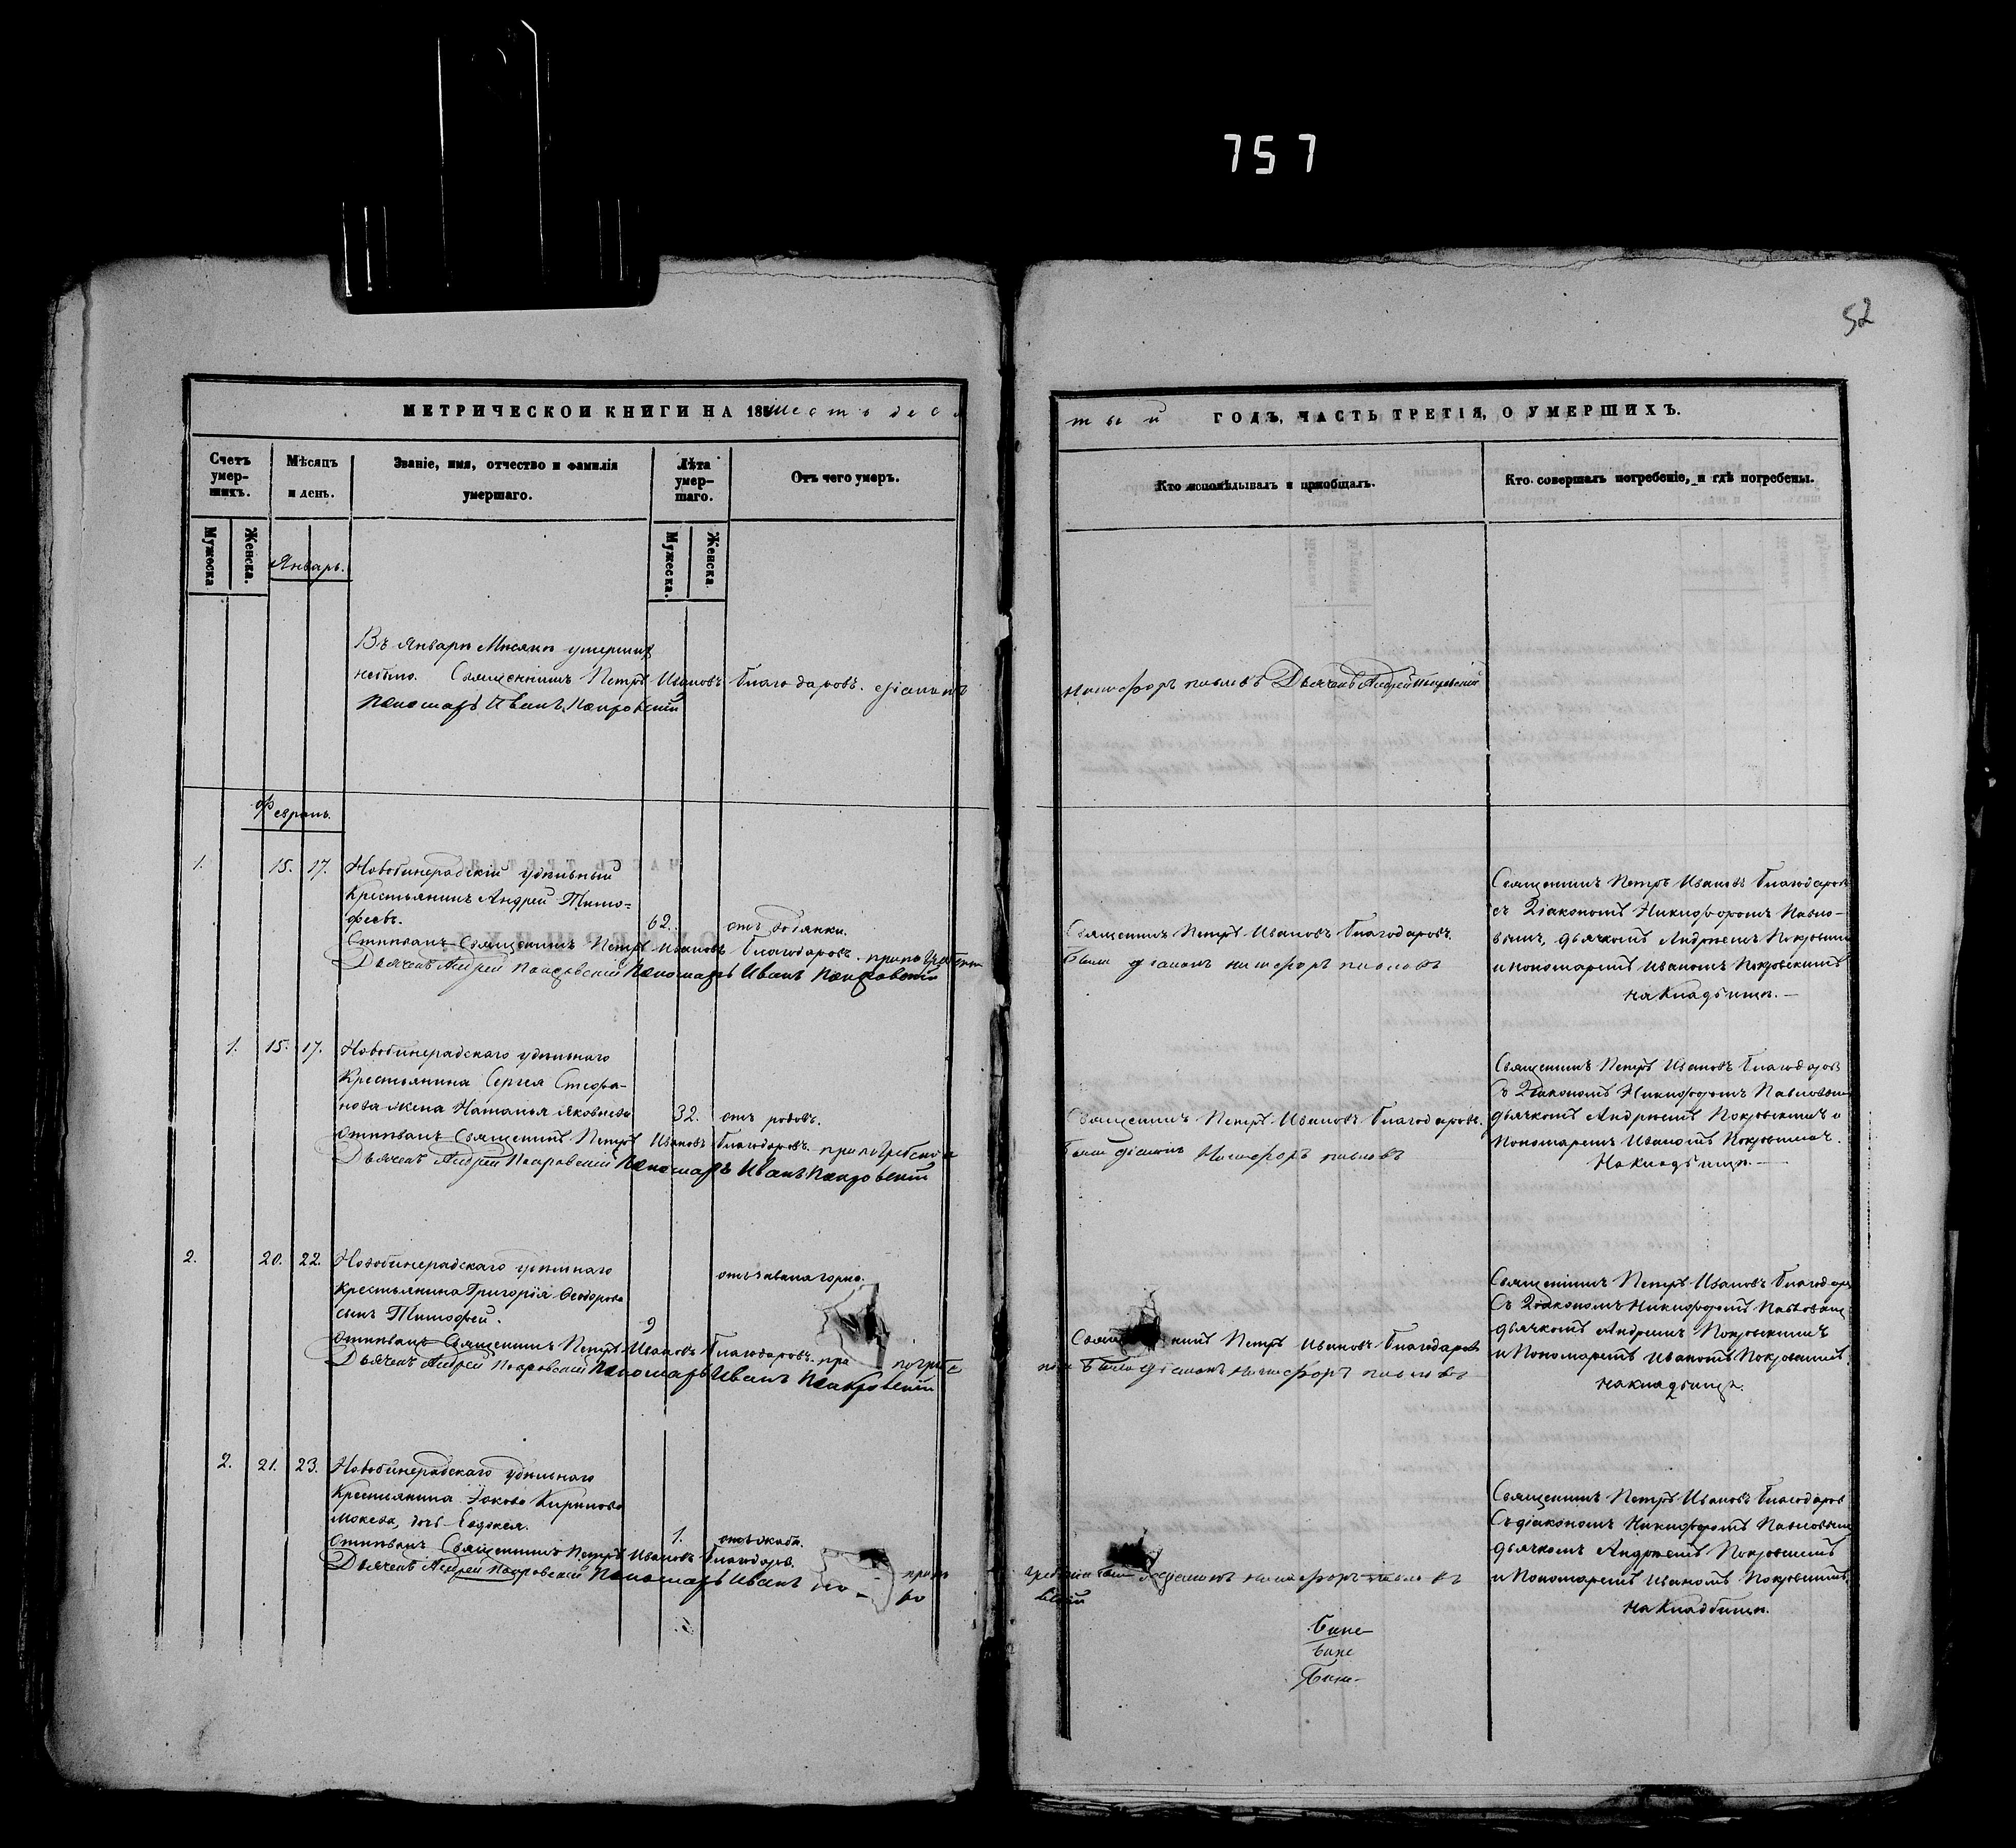 757
52
МЕТРИЧЕСКОЙ КНИГИ НА 18 шестьдеся
тый ГОДЪ, ЧАСТЬ ТРЕТІЯ, О УМЕРШИХЪ.
Счетъ умер-шихъ.
Мѣсяцъ и день.
Званіе, имя, отчество и фамилія умершаго.
Лѣта умер-шаго.
Отъ чего умеръ.
Кто исповѣдывалъ и пріобщалъ.
Кто совершалъ погребеніе, и гдѣ погребены.
Мужеска
Женска.
Мужеска.
Женска
Январь.
Въ январѣ мѣсяцѣ умершихъ
небыло. Священникъ Петръ Ивановъ Благодаровъ. діаконъ
Никифоръ Павловъ Дьячекъ Андрей Покровскій
Пономарь Иванъ Покровскій
Февраль.
1. 15. 17. Новобинерадскій удѣльный
Крестьянинъ Андрей Тимо=
феевъ.
62. отъ водянки.
Отпѣвалъ Священникъ Петръ Ивановъ Благодаровъ. при погребе
Дьячекъ Андрей Покровскій Пономарь Иванъ Покровскій
Священникъ Петръ Ивановъ Благодаровъ.
были діаконъ Никифоръ Павловъ
Священникъ Петръ Ивановъ Благодаровъ
съ Діакономъ Никифоромъ Павло-
вымъ, дьячкомъ Андреемъ Покровским
и пономаремъ Иваномъ Покровскимъ
на Кладбищѣ. —
1. 15. 17. Новобинерадскаго удѣльнаго
Крестьянина Сергея Стефа-
нова жена Наталья Яковлева
32. отъ родовъ.
Отпѣвалъ Священникъ Петръ Ивановъ Благодаровъ. при погребеніи
Дьячекъ Андрей Покровскій Пономарь Иванъ Покровскій
Священникъ Петръ Ивановъ Благодаровъ.
были діаконъ Никифоръ Павловъ
Священникъ Петръ Ивановъ Благодаровъ
съ Діакономъ Никифоромъ Павловым
дьячкомъ Андреемъ Покровскимъ и
Пономаремъ Иваномъ Покровскимъ.
На Кладбищѣ. —
2. 20. 22. Новобинерадскаго удѣльнаго
Крестьянина Григорія Ѳеодорова
сынъ Тимофей.
9
Отпѣвалъ Священникъ Петръ Ивановъ Благодаровъ. при погребе
Дьячекъ Андрей Покровскій Пономарь Иванъ Покровскій
Свящ нникъ Петръ Ивановъ Благодаровъ
ніи были діаконъ Никифоръ Павловъ
Священникъ Петръ Ивановъ Благодаро
Съ Діакономъ Никифоромъ Павловым
дьячкомъ Андреемъ Покровскимъ
и Пономаремъ Иваномъ Покровскимъ.
На кладбищѣ.
2. 21. 23. Новобинерадскаго удѣльнаго
Крестьянина Іакова Кирилова
Мокева, дочь Евдокея.
1.
Отпѣвалъ Священникъ Петръ Ивановъ Благодаровъ.
Дьячекъ Андрей Покровскій Пономарь Иванъ По кро
гребеніи были діаконъ Никифоръ Павловъ
вскій
Священникъ Петръ Ивановъ Благодаров
Съ діакономъ Никифоромъ Павловым
дьячкомъ Андреемъ Покровскимъ
и Пономаремъ Иваномъ Покровскимъ.
На Кладбищѣ.